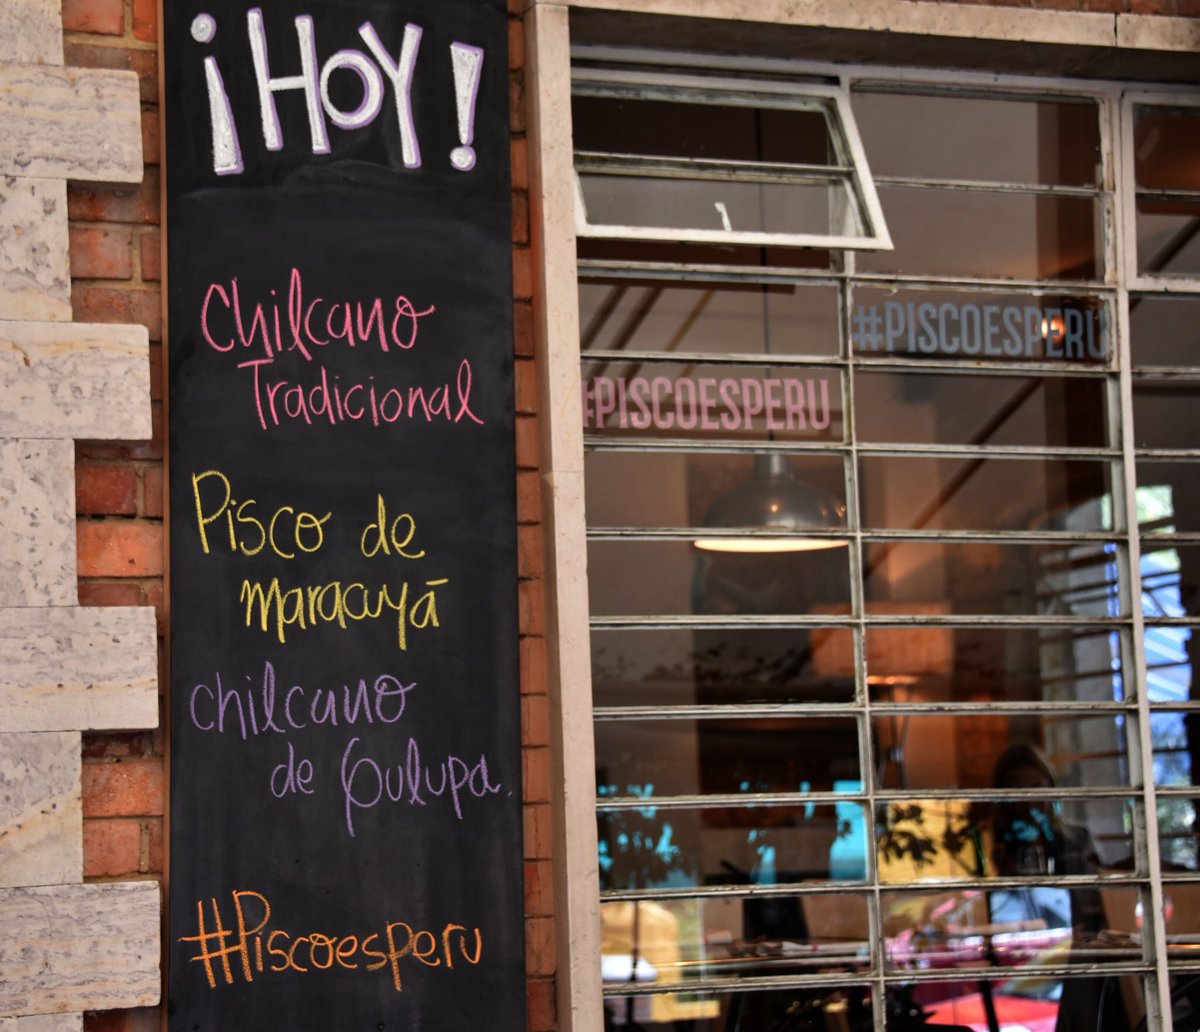 ¡HOY!
Chilcano
Tradicional
Pisco de
maracuyá
chilcano
de Gulupa.
#Piscoesperu
#PISCOESPERU
#PISCOESPERU